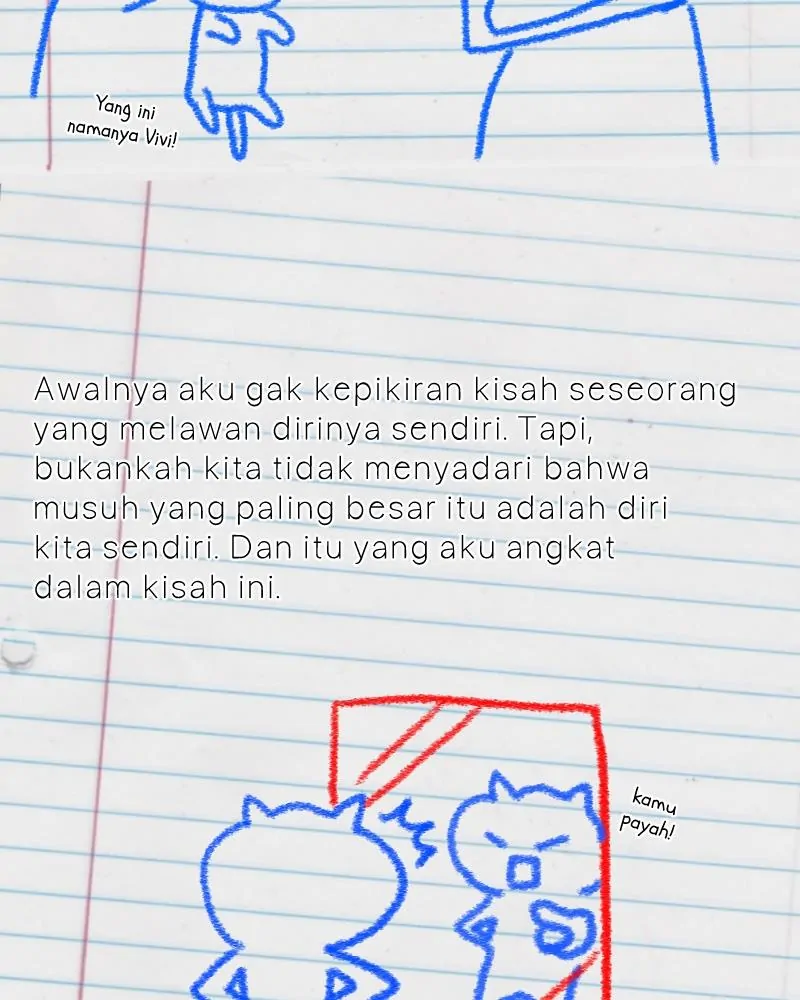 Yang ini
namanya Vivi!
Awalnya aku gak kepikiran kisah seseorang
yang melawan dirinya sendiri. Tapi,
bukankah kita tidak menyadari bahwa
musuh yang paling besar itu adalah diri
kita sendiri. Dan itu yang aku angkat
dalam kisah ini.
kamu
payah!